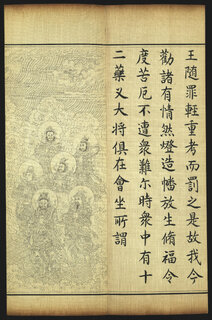 王隨罪輕重考而罰之是故我今
勸諸有情然燈造幡放生脩福令
度苦厄不遭衆難尒時衆中有十
二藥叉大将俱在會坐所謂